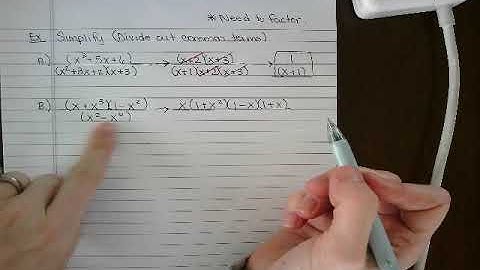 * Need to factor
Ex Simplify (Divide out common terms)
A) (x²+5x+6)/(x²+3x+2)(x+3) → (x+2)(x+3)/(x+1)(x+2)(x+3) → 1/(x+1)
B) (x+x³)(1-x²)/(x²-x⁶) → x(1+x²)(1-x)(1+x)